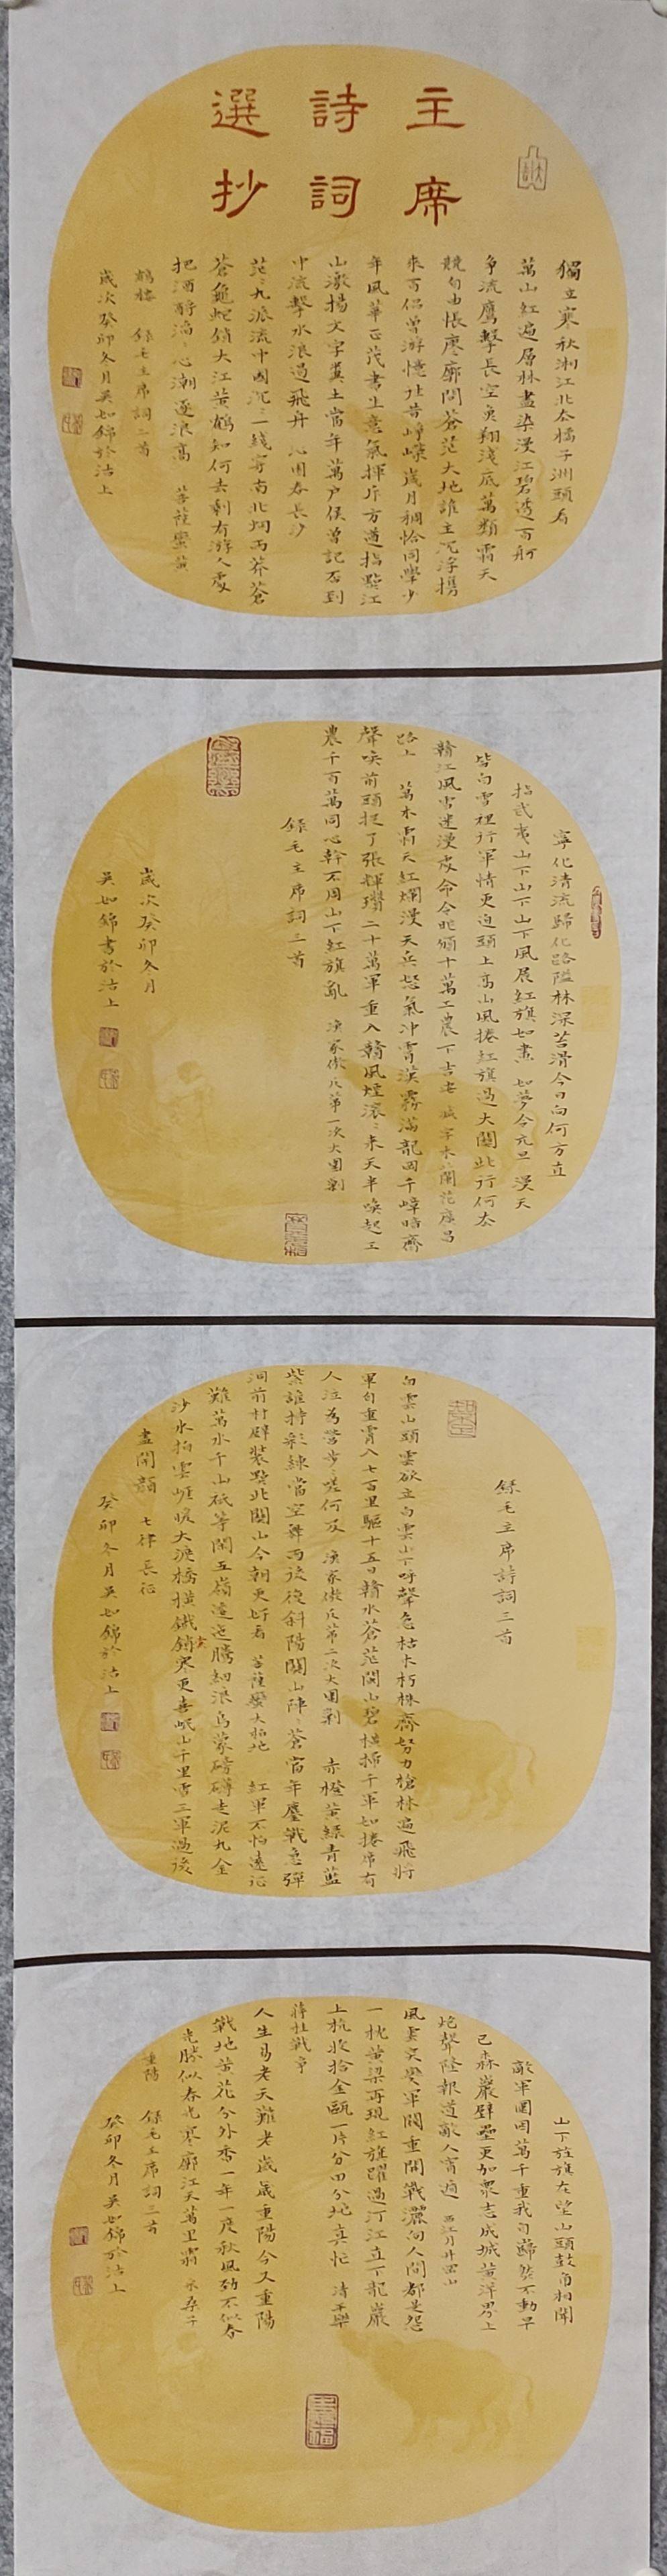 主席
詩詞
選抄
獨立寒秋湘江北去橘子洲頭看
萬山紅遍層林盡染漫江碧透百舸
争流鷹擊長空魚翔淺底萬類霜天
競自由悵寥廓問蒼茫大地誰主沉浮攜
來百侣曾游憶往昔崢嶸歲月稠恰同學少
年風華正茂書生意氣揮斥方遒指點江
山激揚文字糞土當年萬户侯曾記否到
中流擊水浪遏飛舟 沁園春長沙
茫々九派流中國沉々一綫穿南北烟雨莽蒼
蒼龜蛇鎖大江黄鶴知何去剩有游人處
把酒酹滔々心潮逐浪高 菩薩蠻黄
鶴樓 錄毛主席詞二首
歲次癸卯冬月吴如錦於沽上
寧化清流歸化路隘林深苔滑今日向何方直
指武夷山下山下山下風展紅旗如畫 如夢令元旦 漫天
皆白雪裡行軍情更迫頭上高山風捲紅旗過大關此行何去
贛江風雪迷漫處命令昨頒十萬工農下吉安 減字木蘭花廣昌
路上 萬木霜天紅爛漫天兵怒氣冲霄漢霧滿龍岡千嶂暗齊
聲喚前頭捉了張輝瓚二十萬軍重入贛風煙滚々來天半喚起工
農千百萬同心幹不周山下紅旗亂 漁家傲反第一次大圍剿
錄毛主席詞三首
歲次癸卯冬月
吴如錦書於沽上
錄毛主席詩詞三首
白雲山頭雲欲立白雲山下呼聲急枯木朽株齊努力槍林逼飛將
軍自重霄入七百里驅十五日贛水蒼茫閩山碧橫掃千軍如捲席有
人泣為營步々嗟何及 漁家傲反第二次大圍剿 赤橙黄綠青藍
紫誰持彩練當空舞雨後復斜陽關山陣々蒼當年鏖戰急彈
洞前村壁裝點此關山今朝更好看 菩薩蠻大柏地 紅軍不怕遠征
難萬水千山祇等閑五嶺逶迤騰細浪烏蒙磅礴走泥丸金
沙水拍雲崖暖大渡橋横鐵鎖寒更喜岷山千里雪三軍過後
盡開顏 七律長征
癸卯冬月吴如錦於沽上
山下旌旗在望山頭鼓角相聞
敵軍圍困萬千重我自巋然不動早
已森嚴壁壘更加衆志成城黄洋界上
炮聲隆報道敵人宵遁 西江月井岡山
風雲突變軍閥重開戰灑向人間都是怨
一枕黄粱再現紅旗躍過汀江直下龍巖
上杭收拾金甌一片分田分地真忙 清平樂
蔣桂戰争
人生易老天難老歲歲重陽今又重陽
戰地黄花分外香一年一度秋風勁不似春
光勝似春光寥廓江天萬里霜 采桑子
重陽 錄毛主席詞三首
癸卯冬月吴如錦於沽上